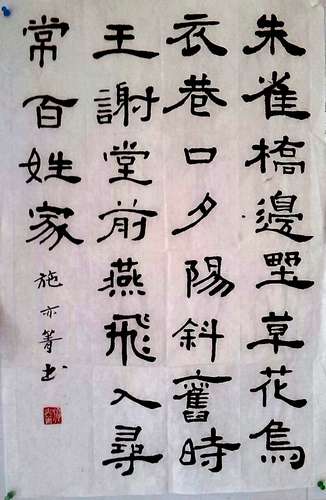 朱雀橋邊野草花烏
衣巷口夕陽斜舊時
王謝堂前燕飛入尋
常百姓家
施亦箐书